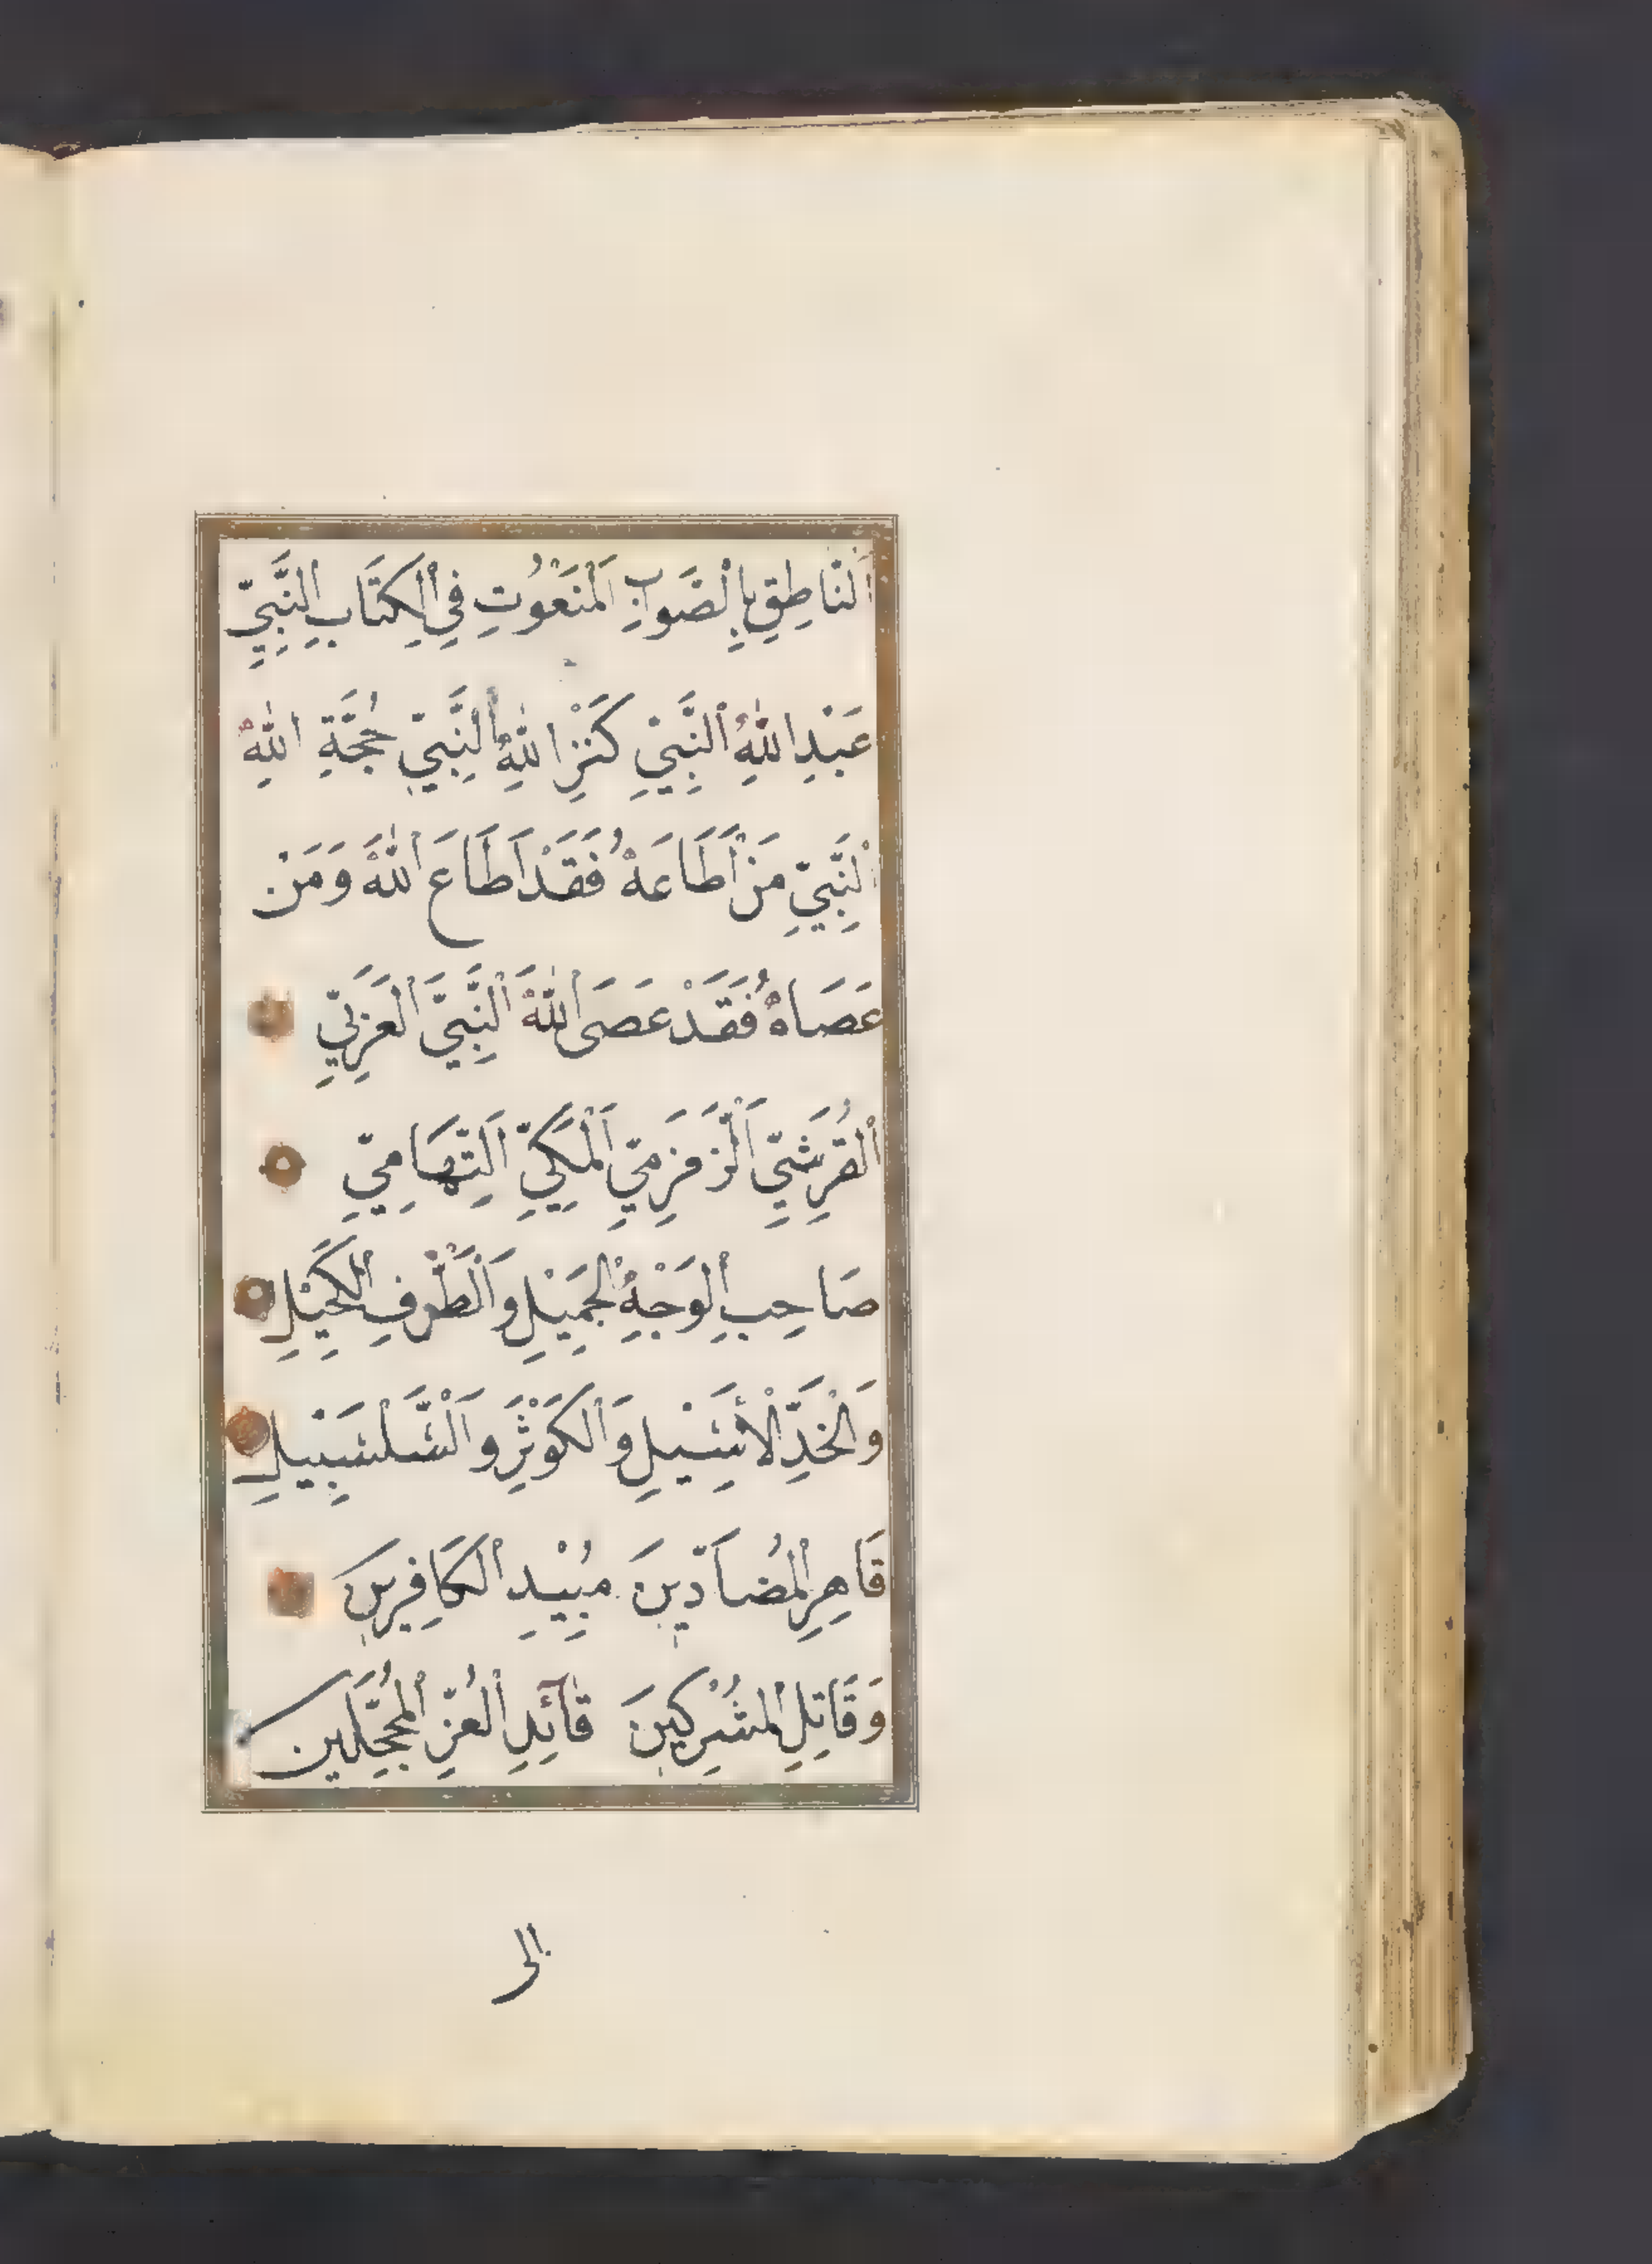 اَلنَّاطِقِ بِالصَّوَابِ اَلْمَنْعُوْتِ فِي الْكِتَابِ النَّبِيِّ
عَبْدِ اللّٰهِ النَّبِيِّ كَنْزِ اللّٰهِ النَّبِيِّ حُجَّةِ اللّٰهِ
النَّبِيِّ مَنْ اَطَاعَهُ فَقَدْ اَطَاعَ اللّٰهَ وَمَنْ
عَصَاهُ فَقَدْ عَصَى اللّٰهَ النَّبِيِّ الْعَرَبِيِّ
الْقُرَشِيِّ اَلزَّمْزَمِيِّ اَلْمَكِّيِّ اَلتِّهَامِيِّ
صَاحِبِ الْوَجْهِ الْجَمِيْلِ وَالطَّرْفِ الْكَحِيْلِ
وَالْخَدِّ الْأَسِيْلِ وَالْكَوْثَرِ وَالسَّلْسَبِيْلِ
قَاهِرِ الْمُضَادِّيْنَ مُبِيْدِ الْكَافِرِيْنَ
وَقَاتِلِ الْمُشْرِكِيْنَ قَآئِدِ الْغُرِّ الْمُحَجَّلِيْنَ
الى